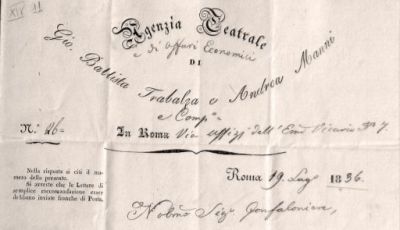 XIV 11
Agenzia Teatrale
e di affari Economici
DI
Gio. Battista Trabalza e Andrea Manni
e Comp.
N.° 26=
In Roma Via Uffizi dell' Vicario 7.
Nella risposta si citi il numero
della presente.
Si averte che le Lettere di
semplice raccomandazione esser
debbono inviate franche di Posta.
Roma 19 Lug. 1836.
Nobmo Sigr Gonfaloniere,